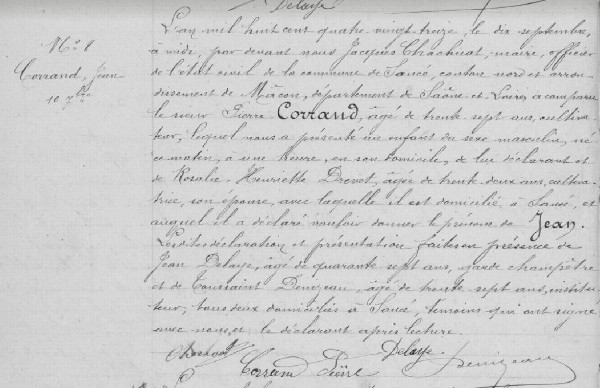 Delaye
N° 8
Corrand, Jean
10 7bre
L'an mil huit cent quatre vingt-treize, le dix septembre,
à midi, par devant nous Jacques Chachuat, maire, officier
de l'état civil de la commune de Sancé, canton nord et arron-
dissement de Mâcon, département de Saône-et-Loire, a comparu
le sieur Pierre Corrand, âgé de trente sept ans, cultiva-
teur, lequel nous a présenté un enfant du sexe masculin, né
ce matin, à une heure, en son domicile, de lui déclarant et
de Rosalie-Henriette Drevet, âgée de trente-deux ans, cultiva-
trice, son épouse, avec laquelle il est domicilié à Sancé, et
auquel il a déclaré vouloir donner le prénom de Jean.
Lesdites déclaration et présentation faites en présence de
Jean Delaye, âgé de quarante sept ans, garde champêtre
et de Toussaint Denizeau, âgé de trente sept ans, institu-
teur, tous deux domiciliés à Sancé, témoins qui ont signé
avec nous, et le déclarant après lecture.
Delaye
Corrand Pierre
Denizeau